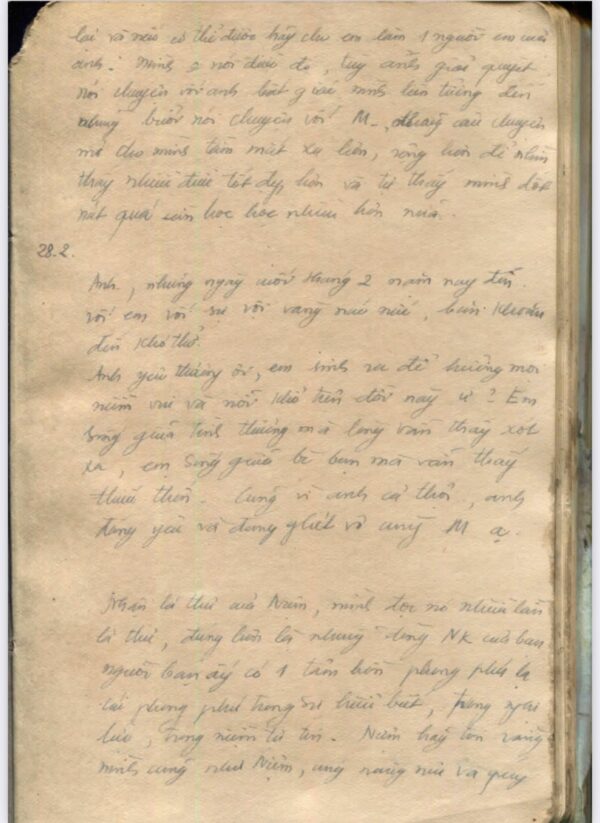 lại và nếu có thể được hãy cho em làm 1 người em của
anh. Mình nơi đâu đó, tùy anh giải quyết
Nói chuyện với anh bất giác mình liên tưởng đến
những buổi nói chuyện với M. những câu chuyện
mà cho mình tầm mắt xa hơn, rộng hơn để nhìn
thấy nhiều điều tốt đẹp hơn và tự thấy mình dốt
nát quá cần học học nhiều hơn nữa.
28.2.
Anh, những ngày cuối tháng 2 năm nay đến
với em với sự vội vàng náo nức, băn khoăn
đến khó thở.
Anh yêu thương ơi, em sinh ra để hưởng mọi
niềm vui và nỗi khổ trên đời này ư? Em
sống giữa tình thương mà lòng vẫn thấy xót
xa, em sống giữa bè bạn mà vẫn thấy
thiếu thốn. Cũng vì anh cả thôi, anh
đáng yêu và đáng ghét vô cùng M ạ.
Nhận lá thư của Niệm, mình đọc nó nhiều lần
lá thư, đúng hơn là những dòng NK của bạn
người bạn ấy có 1 tâm hồn phong phú lạ
cái phong phú trong sự hiểu biết, trong nghị
lực, trong niềm tự tin. Niệm hãy tin rằng
mình cũng như Niệm, cũng nâng niu và quý